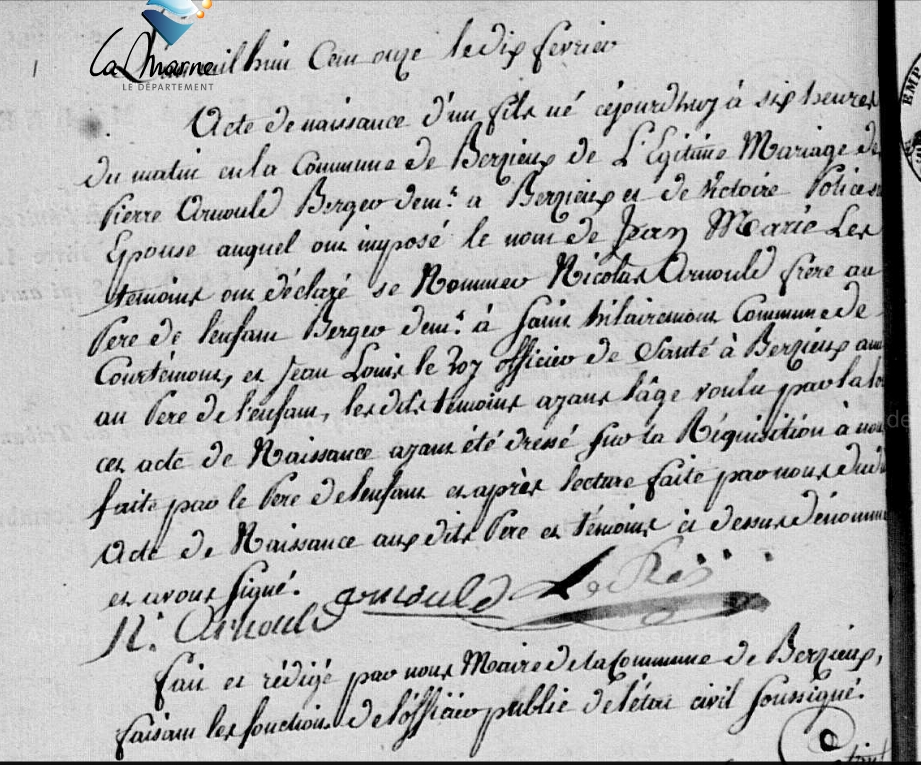 La Marne
LE DÉPARTEMENT
mil huit Cent onze le dix fevrier
Acte de naissance d'un fils né cejourdhuy à six heures
du matin en la Commune de Berzieux de L'Egitime Mariage de
Pierre Arnould Berger demt. a Berzieux et de Victoire
Epouse auquel ont imposé le nom de Jean Marie Les
temoins ont déclaré se Nommer Nicolas Arnould frère au
Pere de l'enfant Berger demt. à Saint hilairemont Commune de
Courtémont, et Jean Louis le Roy officier de Santé à Berzieux
au Pere de l'enfant, les dits témoins ayant l'âge voulu par la
cet acte de Naissance ayant été dressé sur la Réquisition à nous
faite par le Pere de l'enfant et après lecture faite par nous dud
Acte de Naissance aux dits Pere et témoins ci dessus dénommé
et avons signé. arnould Le Roi
N. Arnould
fait et rédigé par nous Maire de la Commune de Berzieux,
faisant les fonctions de l'officier public de l'état civil soussigné.